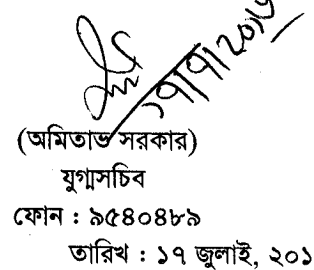 ১৭/৭/২০১৬
(অমিতাভ সরকার)
যুগ্মসচিব
ফোন : ৯৫৪০৪৮৯
তারিখ : ১৭ জুলাই, ২০১